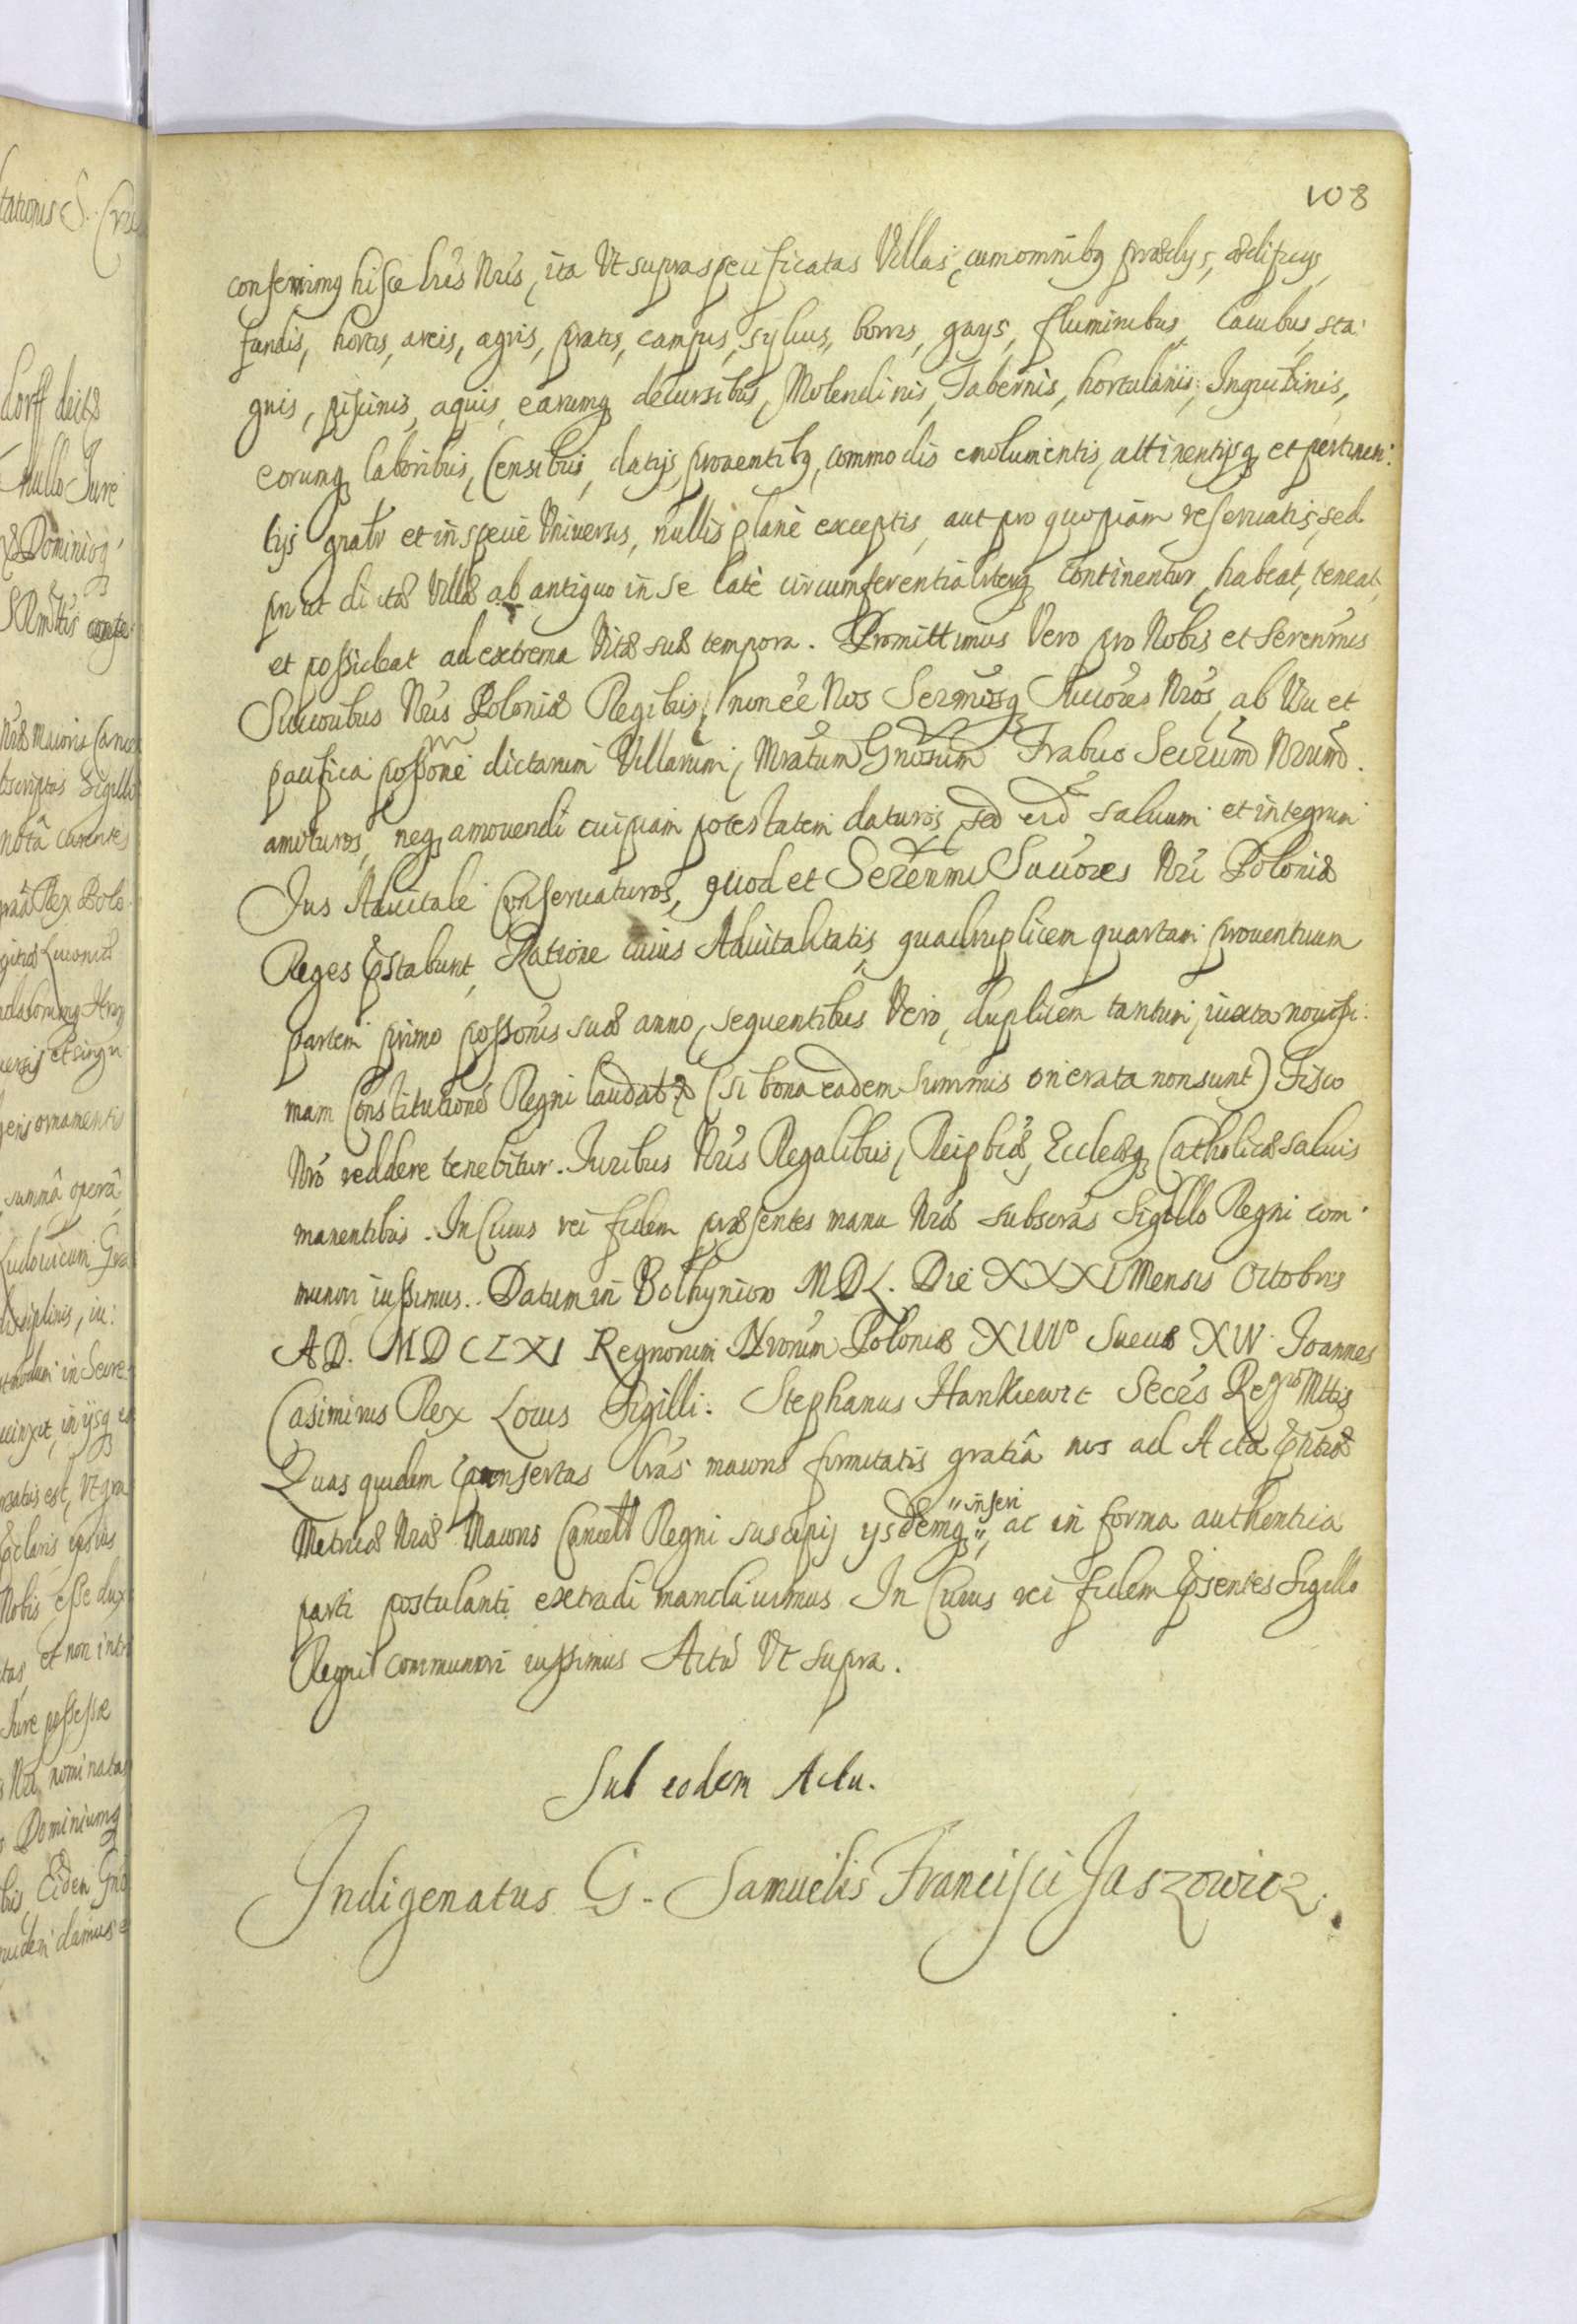 108
conferimq hisce lrĩs Nrĩs, ita Vt supraspecificatas Villas, cum omnibq prædys, ædificys,
fundis, hortis, areis, agris, pratis, campis, syluis, borris, gays, fluminibus, lacubus, sta:
gnis, piscinis, aquis, earumq decursibus, Molendinis, Tabernis, hortulanis, Inquilinis,
eorumq laboribus, Censibus, datys, prouentibq, commodis emolumentis, attinentysq et pertinen:
tys gnatr et in specie Vniuersis, nullis planè exceptis, aut pro quopiam reseruatis, sed
prout dictæ Villæ ab antiquo in se latè circumferentialiterq continentur, habeat, teneat,
et possideat ad extrema Vitæ suæ tempora. Promittimus Vero pro Nobis et Serenmis
Succoribus Nrĩs Poloniæ Regibus, non eẽ Nos Sermosq Succores Nros, ab Vsu et
pacifica possone dictarum Villarum, Mratum Gnosum Frabus Secrum Nrum.
amoturos, neq amouendi cuipiam potestatem daturos, sed eid saluum et integrum
Jus Aduitale Conseruaturos, quod et Serenmi Succores Nri Poloniæ
Reges Pstabunt, Ratione cuius Aduitalitatis quadruplicem quartam prouentuum
partem primo possonis suæ anno, sequentibus Vero, duplicem tantum, iuxta nouissi:
mam Constitutione Regni laudat (si bona eadem summis onerata non sunt) Fisco
Nro reddere tenebitur. Juribus Nris Regalibus, Reipbcæ, Eccleæq Catholicæ saluis
manentibus. In Cuius rei fidem præsentes manu Nra subscras Sigillo Regni com:
muniri iussimus. Datum in Bothynion MDL. Die XXXI Mensis Octobris
AD. MDCLXI Regnorum Nrorum Poloniæ XIIII Sueciæ XIV. Joannes
Casimirus Rex Locus Sigilli. Stephanus Hankiewic Secrs Regiæ Mttis
Quas quidem insertas lrãs maioris firmitatis gratiâ nos ad Acta Pntia
Metricæ Nræ Maioris Cancell Regni suscipij ysdemq "inseri", ac in forma authentica
parti postulanti extradi mandauimus In Cuius rei fidem Psentes Sigillo
Regni communiri iussimus Actũ Vt supra.
Sub eodem Actu.
Indigenatus G. Samuelis Francisci Jaszowicz.